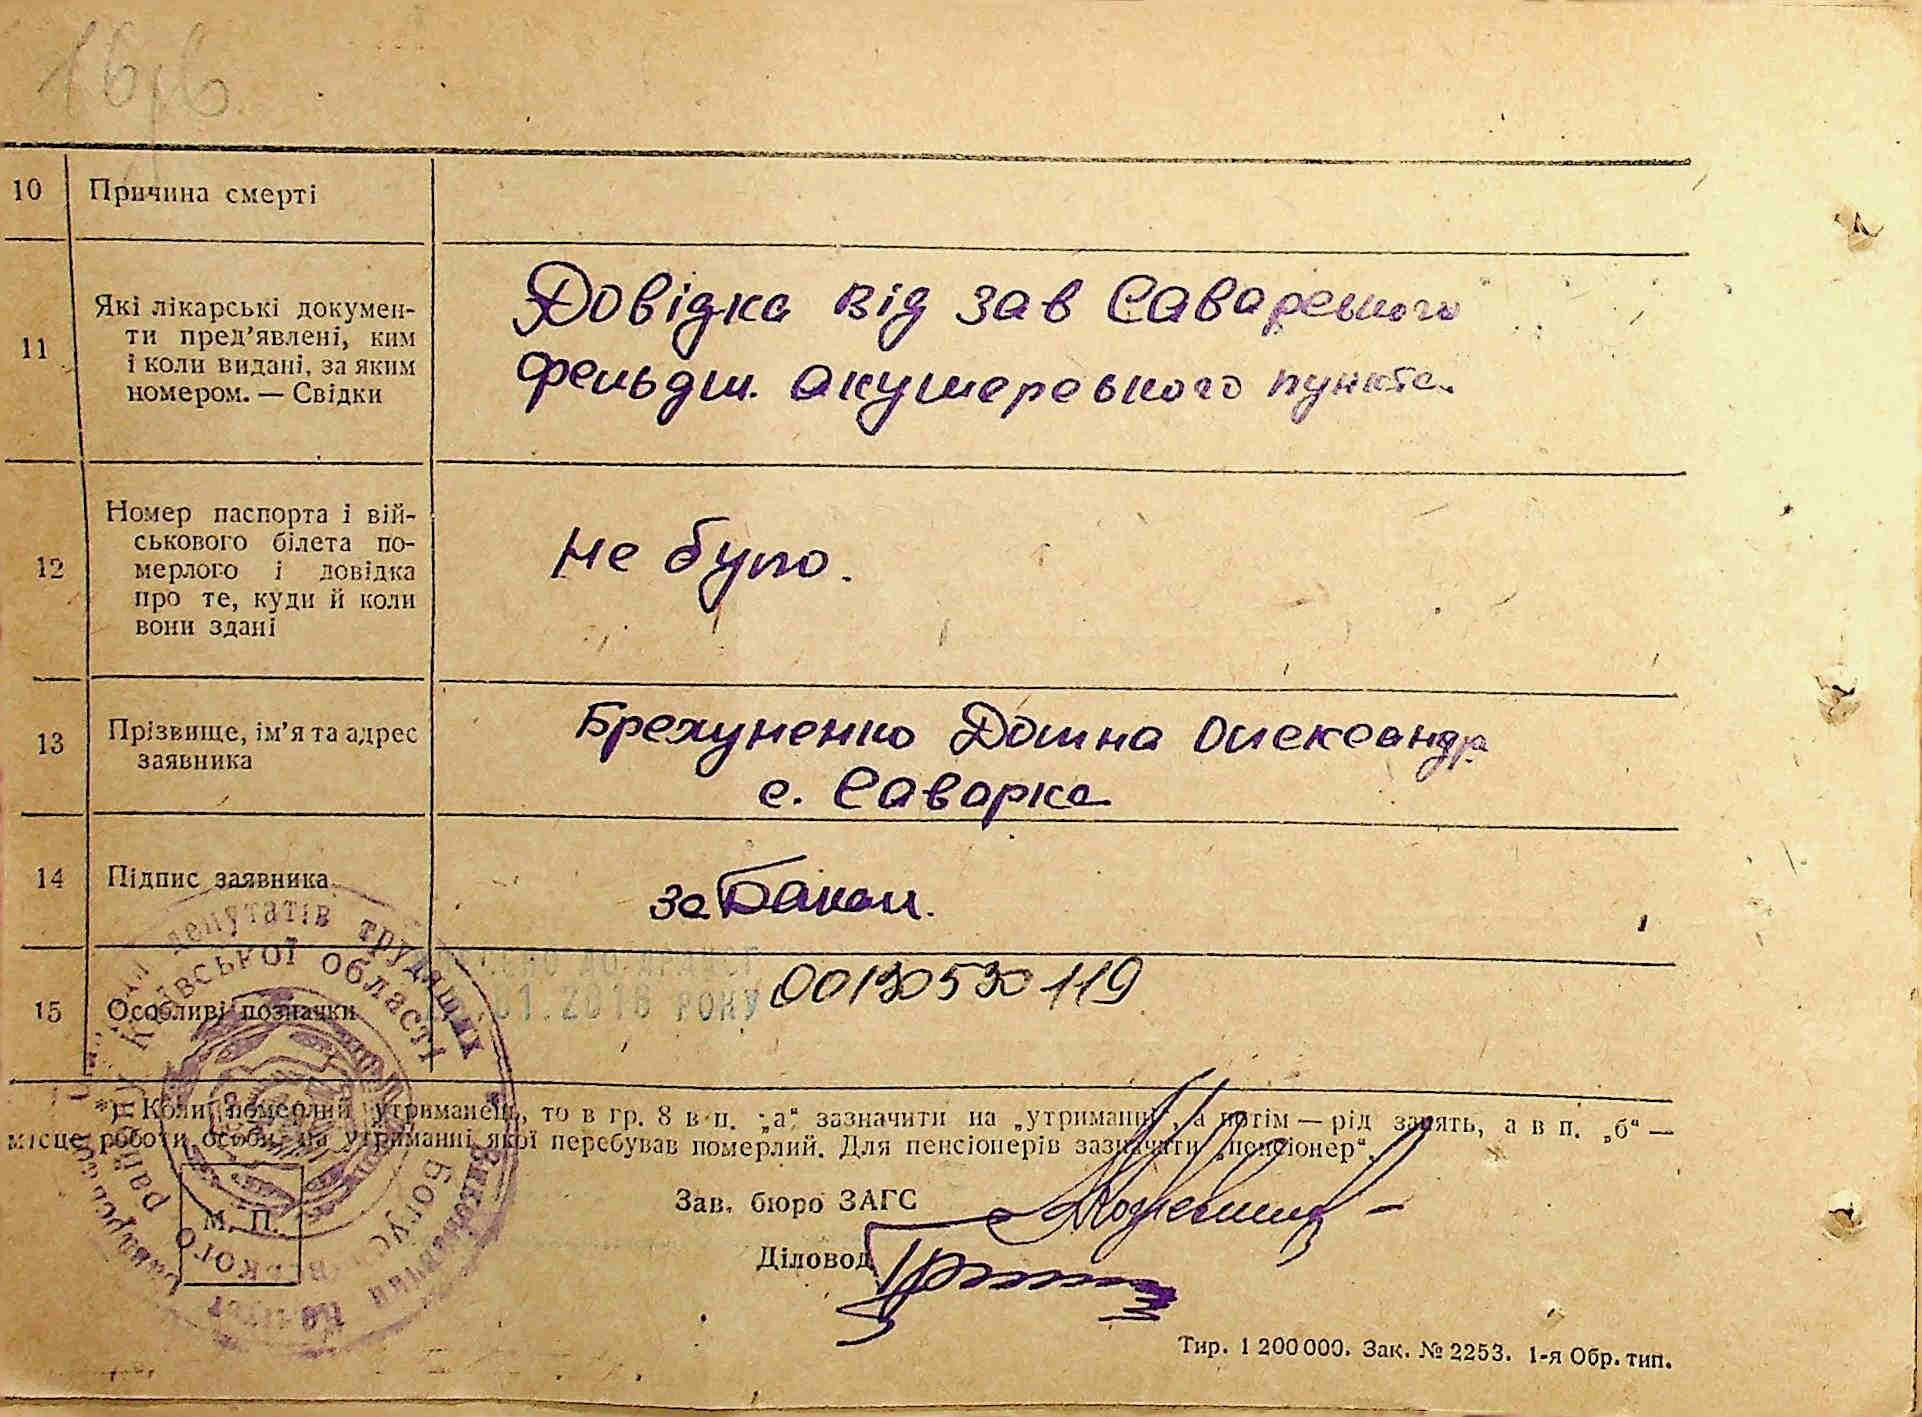 10 Причина смерті
11 Які лікарські докумен-
ти пред'явлені, ким
і коли видані, за яким
номером. — Свідки
Довідка від зав Саварського
фельдш. акушерського пункта.
12 Номер паспорта і вій-
ськового білета по-
мерлого і довідка
про те, куди й коли
вони здані
Не було.
13 Прізвище, ім'я та адрес
заявника
Брехуненко Домна Олександр.
с. Саварка
14 Підпис заявника
за
15 Особливі позначки
00130530119
.01.2018 РОКУ
*) Коли померлий утриманець, то в гр. 8 в п. „а“ зазначити на „утриманні“, а потім — рід занять, а в п. „б“ —
місце роботи особи, на утриманні якої перебував померлий. Для пенсіонерів зазначити „пенсіонер“.
Зав. бюро ЗАГС
М. П.
Діловод
депутатів трудящих
Київської області
Богуславського району
Виконавчий
Тир. 1 200 000. Зак. № 2253. 1-я Обр. тип.